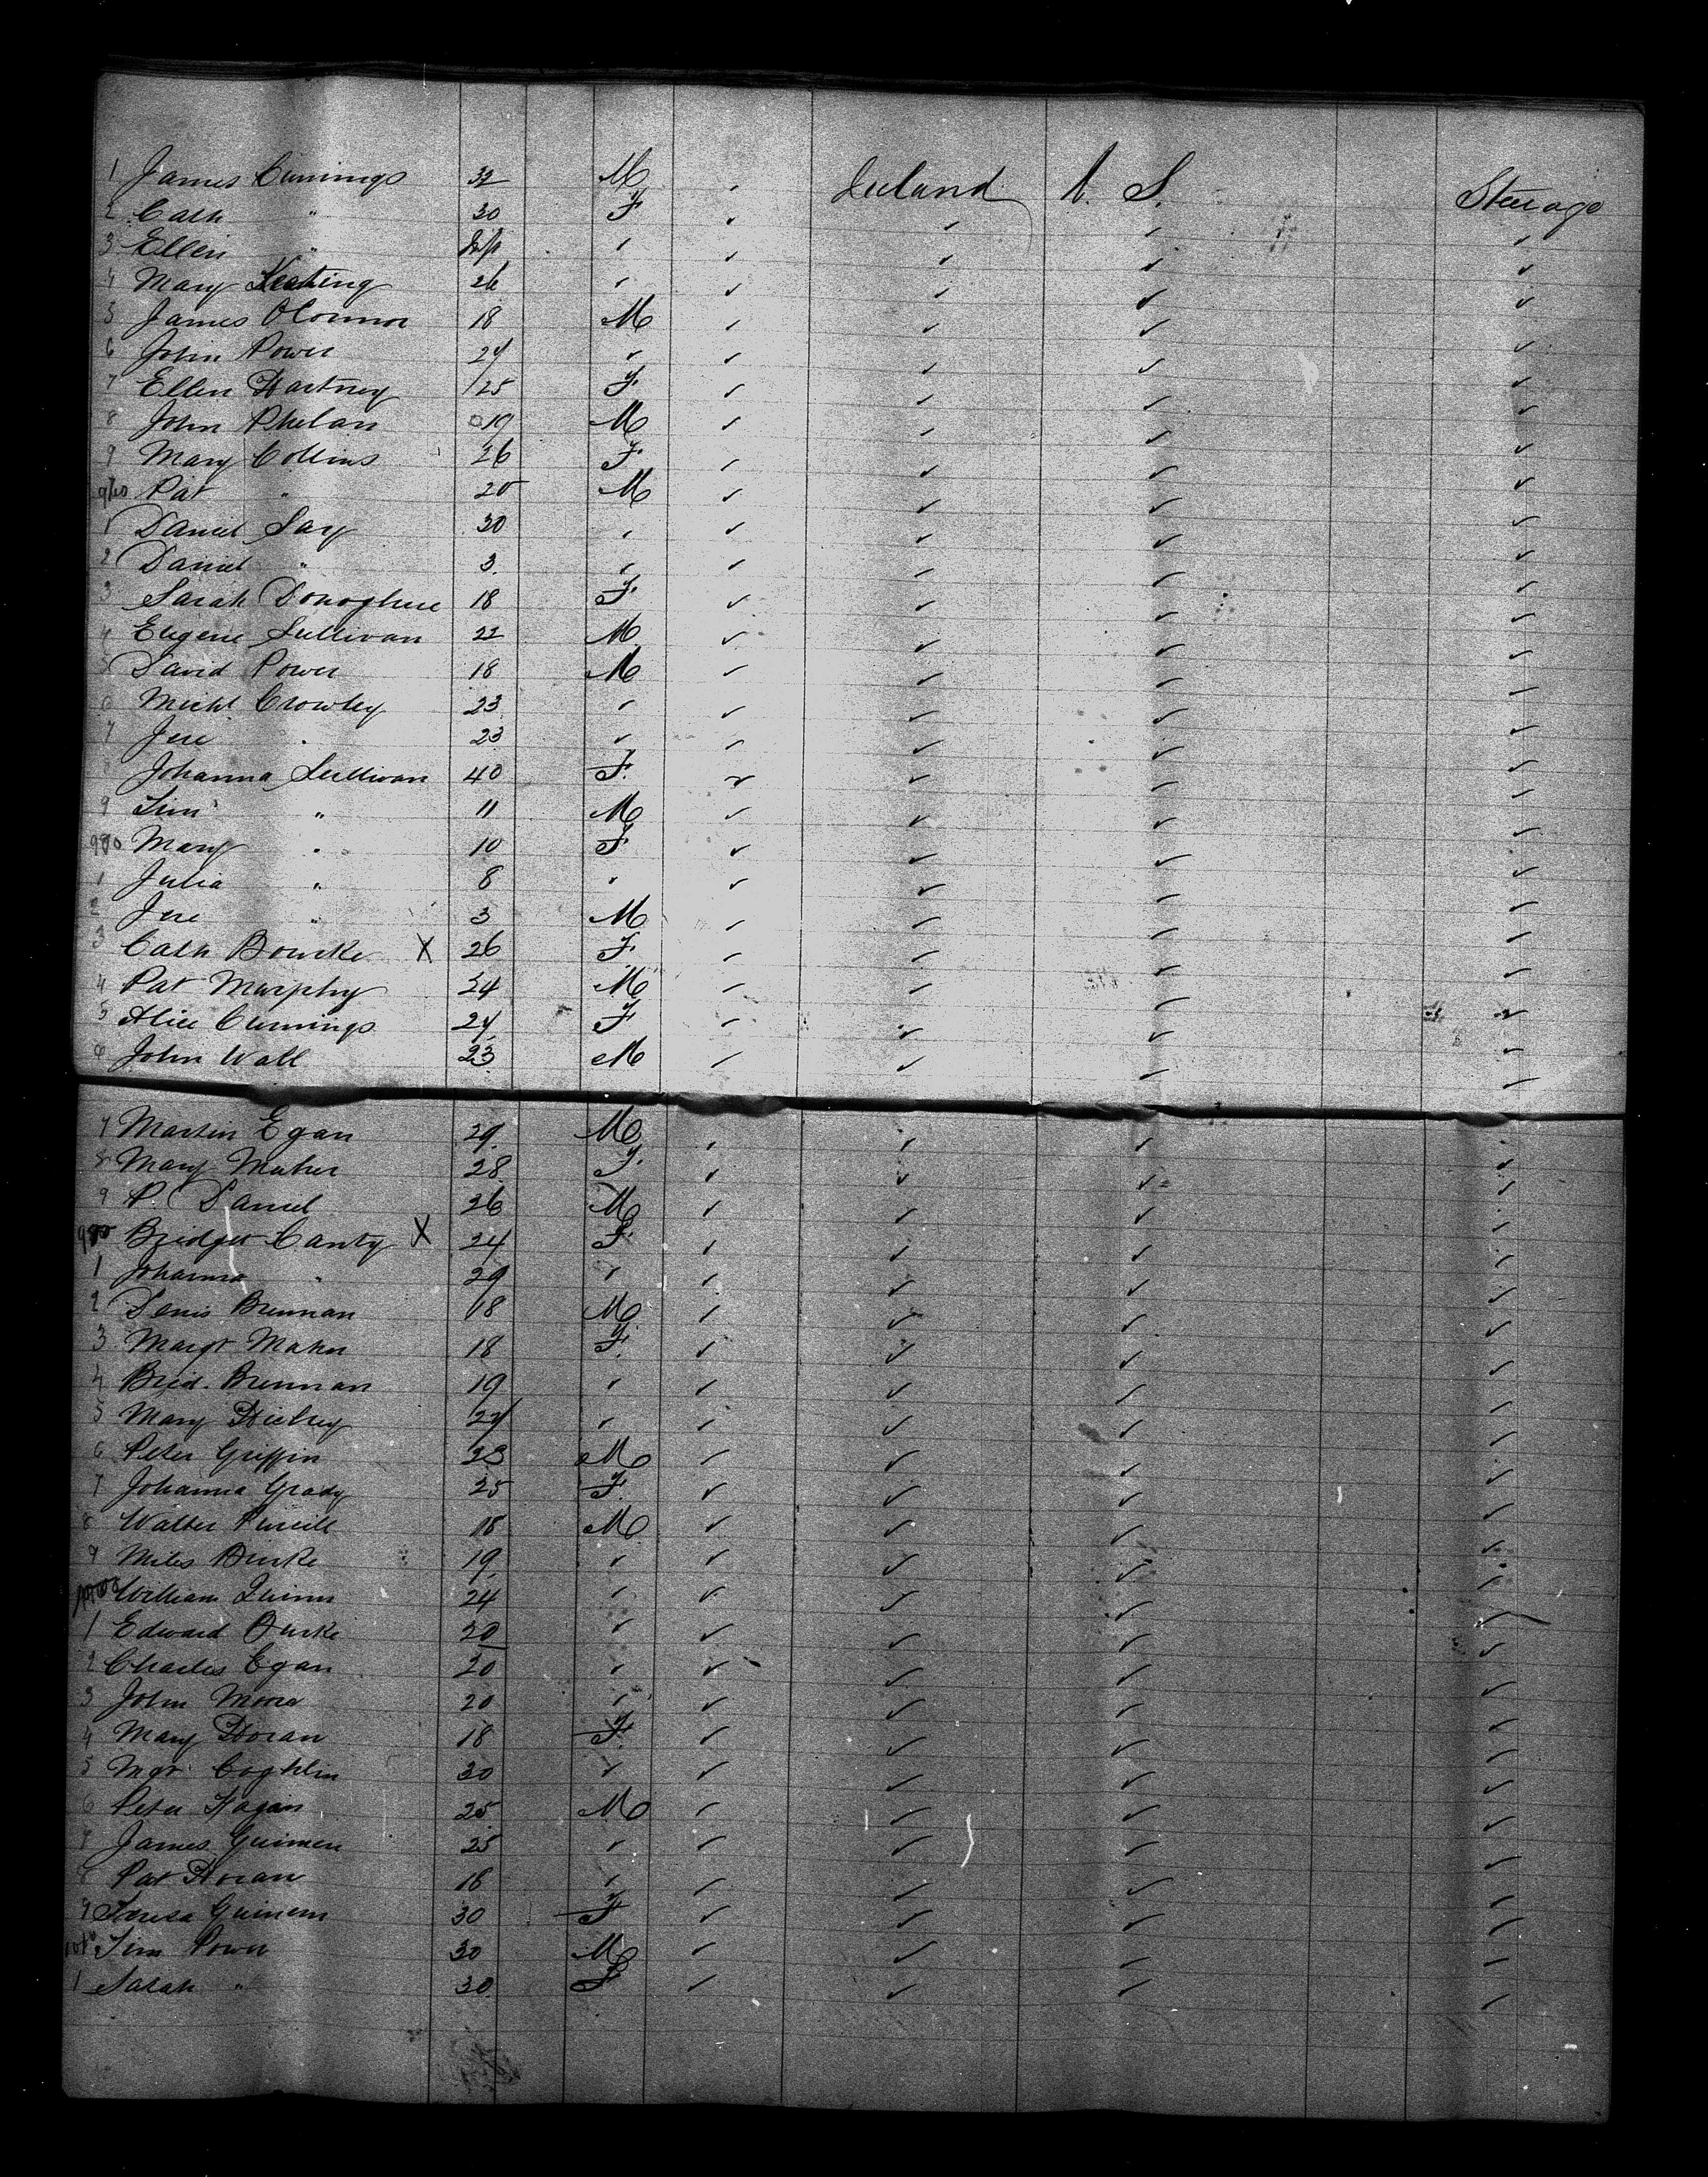 1 James Cumings 32 M ✓ Ireland U. S. Steerage
2 Cath " 30 F ✓ ✓ ✓ ✓
3 Ellen " Inft ✓ ✓ ✓ ✓ ✓
4 Mary Keating 26 ✓ ✓ ✓ ✓ ✓
5 James OConnor 18 M ✓ ✓ ✓ ✓
6 John Power 24 ✓ ✓ ✓ ✓ ✓
7 Ellen Hartney 25 F ✓ ✓ ✓ ✓
8 John Phelan 19 M ✓ ✓ ✓ ✓
9 Mary Collins 26 F ✓ ✓ ✓ ✓
970 Pat " 20 M ✓ ✓ ✓ ✓
1 Daniel 30 ✓ ✓ ✓ ✓ ✓
2 Daniel " 3 ✓ ✓ ✓ ✓ ✓
3 Sarah Donoghue 18 F ✓ ✓ ✓ ✓
4 Eugene Sullivan 22 M ✓ ✓ ✓ ✓
5 David Power 18 M ✓ ✓ ✓ ✓
6 Michl Crowley 23 ✓ ✓ ✓ ✓ ✓
7 Jere " 23 ✓ ✓ ✓ ✓ ✓
Johanna Sullivan 40 F ✓ ✓ ✓ ✓
9 Tim " 11 M ✓ ✓ ✓ ✓
980 Mary " 10 F ✓ ✓ ✓ ✓
1 Julia " 8 ✓ ✓ ✓ ✓ ✓
2 Jere " 3 M ✓ ✓ ✓ ✓
3 Cath Bourke X 26 F ✓ ✓ ✓ ✓
4 Pat Murphy 24 M ✓ ✓ ✓ ✓
5 Alice Cumings 24 F ✓ ✓ ✓ ✓
6 John Wall 23 M ✓ ✓ ✓ ✓
7 Martin Egan 29 M ✓ ✓ ✓ ✓
8 Mary Maher 28 F ✓ ✓ ✓ ✓
9 P. Daniel 26 M ✓ ✓ ✓ ✓
990 Bridget Canty X 24 F ✓ ✓ ✓ ✓
1 Johanna " 29 ✓ ✓ ✓ ✓ ✓
2 Denis Brennan 18 M ✓ ✓ ✓ ✓
3 Margt Maher 18 F ✓ ✓ ✓ ✓
4 Brid. Brennan 19 ✓ ✓ ✓ ✓ ✓
5 Mary Hickey 24 ✓ ✓ ✓ ✓ ✓
6 Peter Griffin 23 M ✓ ✓ ✓ ✓
7 Johanna Grady 25 F ✓ ✓ ✓ ✓
8 Walter Purcill 18 M ✓ ✓ ✓ ✓
9 Miles Burke 19 ✓ ✓ ✓ ✓ ✓
1000 William Quinn 24 ✓ ✓ ✓ ✓ ✓
1 Edward Burke 20 ✓ ✓ ✓ ✓ ✓
2 Charles Egan 20 ✓ ✓ ✓ ✓ ✓
3 John Moore 20 ✓ ✓ ✓ ✓ ✓
4 Mary Horan 18 F ✓ ✓ ✓ ✓
5 Mgt Coghlin 30 ✓ ✓ ✓ ✓ ✓
6 Peter Hagan 25 M ✓ ✓ ✓ ✓
7 James 25 ✓ ✓ ✓ ✓ ✓
8 Pat Horan 18 ✓ ✓ ✓ ✓ ✓
9 Teresa 30 F ✓ ✓ ✓ ✓
1010 Tim Power 30 M ✓ ✓ ✓ ✓
1 Sarah " 30 F ✓ ✓ ✓ ✓